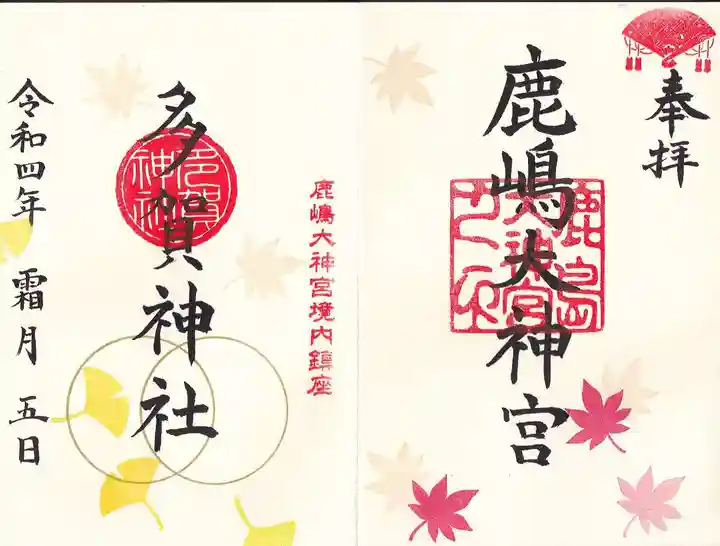 奉拝
鹿嶋大神宮
鹿嶋大神宮境内鎮座
多賀神社
多賀神社
令和四年 霜月 五日